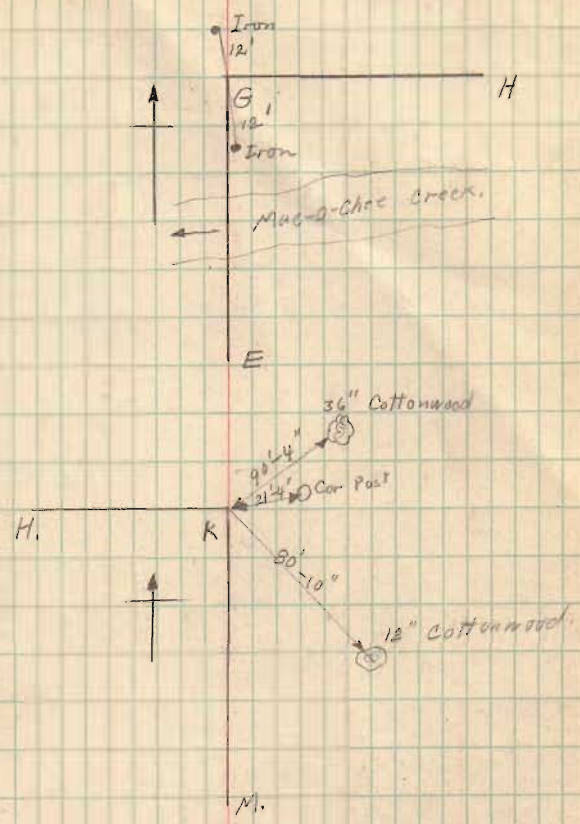 Iron
12'
H
G
12'
Iron
Mac-o-Chee Creek.
E
36" Cottonwood
90'-4"
21'-4"
Cor Post
H.
K
80'-10"
12" Cottonwood.
M.